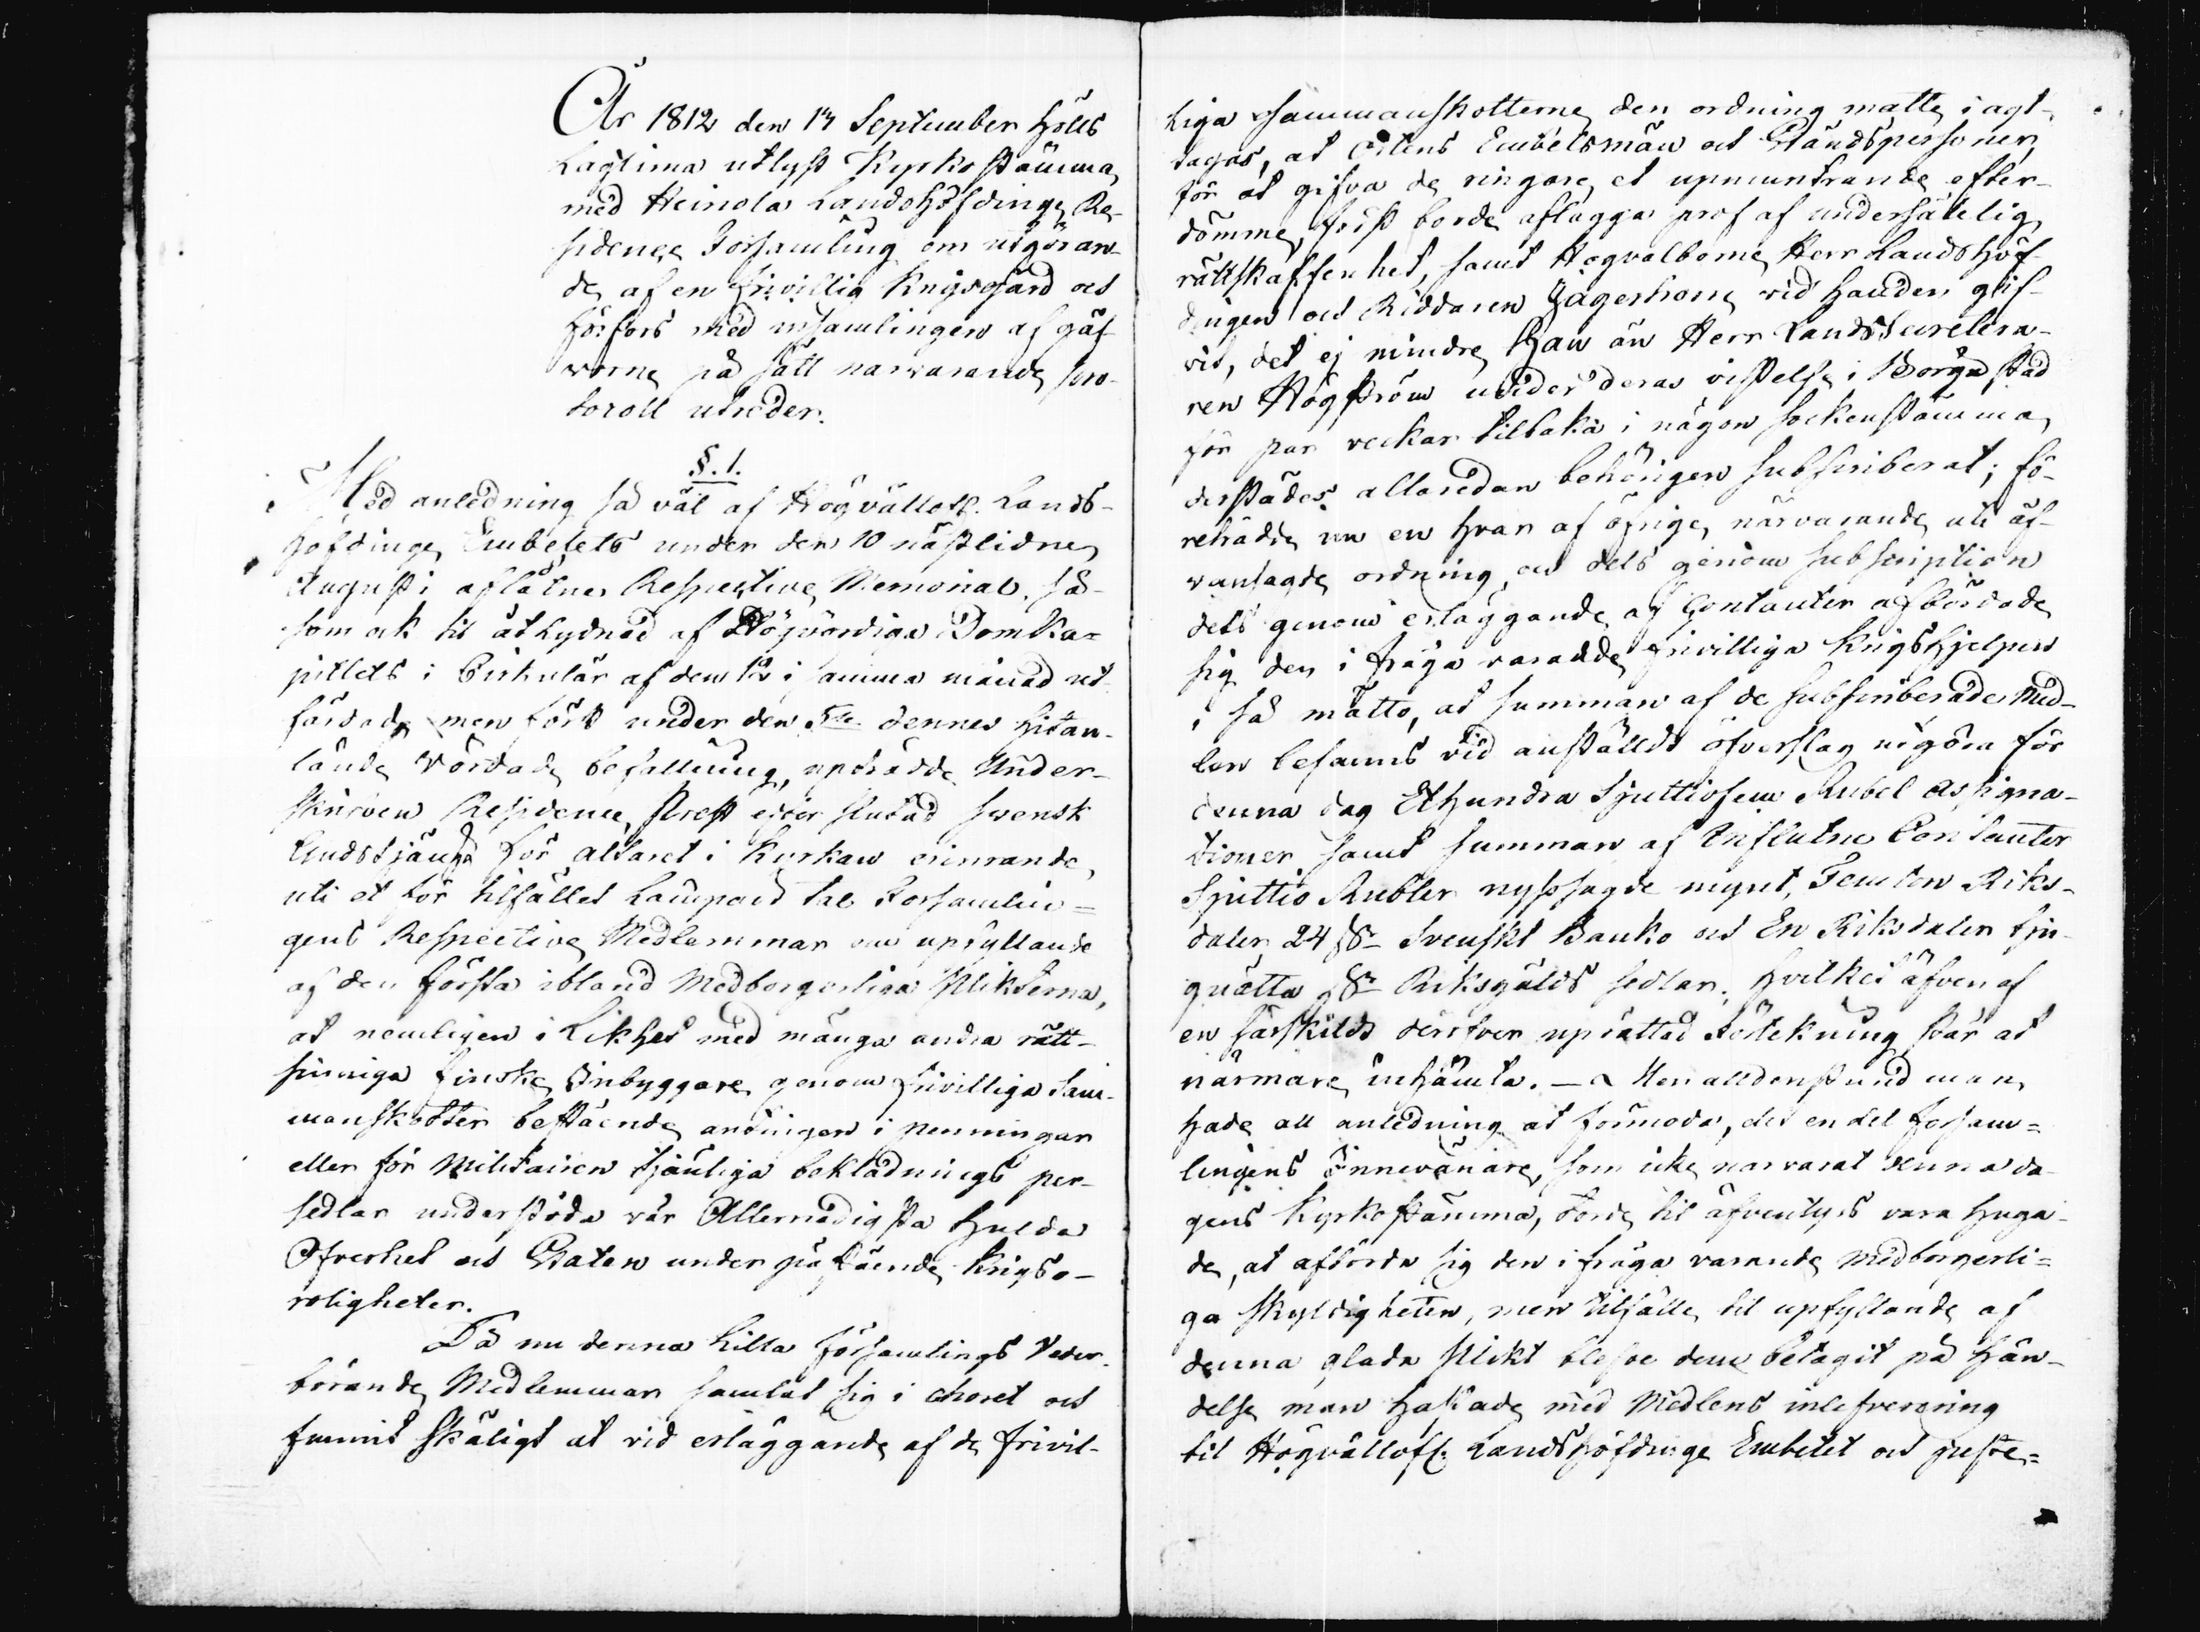 År 1812 den 13 September hölls
Laglima utlyst Kyrko stämma
med Heinola Landshöfdinge Re-
sidence Församling om utgöran-
de af en frivillig Krigsgärd och
förfors med insamlingen af gåf
vorne på sätt närvarande pro-
tocoll utreder.
§. 1.
Med anledning så väl af Högvällofl. Lands-
höfdinge Embetets under den 10 nästlidne
Augusti aflåtne Respective Memorial, så-
som ock til åtlydnad af Högvördiga Domka-
pitlets i Cirkulär af den 12 i samma månad ut-
färdade men först under den 5te dennes hitan-
lände Vördade befallning, uptrådde Under-
skrifven Residence Prest efter slutad svensk
Gudstjänst för altaret i Kyrkan erinrande,
uti et för tilfället lämpad tal Församlin-
gens Respective Medlemmar om upfyllande
af den första ibland Medborgerliga Plikterna,
at nemligen i Likhet med många andra rätt-
sinniga finske Inbyggare genom frivilliga Sam-
manskotter bestående antingen i penningar
eller för Militairen tjänliga beklädnings per-
sedlar understöda vår Allernådigsta hulda
Öfverhet och Staten under påstående Krigso-
roligheter.
Då nu denna lilla församlings Veder-
börande Medlemmar samlat sig i choret och
funnit skäligt at vid erläggande af de frivil-
liga Sammanskotterne den ordning måtte i agt-
tagas, at Ortens Embetsmän och Ståndspersoner,
för at gifva de ringare et upmuntrande efter-
dömme, först borde aflägga prof af undersåtelig
rättskaffenhet, samt Högvälborne Herr Landshöf-
dingen och Riddaren Jägerhorn vid handen gif-
vit, det ej mindre Han än Herr Landssecretera-
ren Högström under deras vistelse i Borgå stad
för par veckor tilbaka i någon sockenstämma
derstädes allaredan behörigen subscriberat; fö-
reträdde nu en hvar af öfrige närvarande uti äf-
vansagde ordning, och dels genom subscription
dels genom erläggande af Contanter afbördade
sig den i fråga varande frivilliga Krigshjelpen
i så måtto, at summan af de subscriberade Med-
len befanns vid anställdt öfverslag utgöra för
denna dag Ethundra Sjuttiofem Rubel Assigna-
tioner samt summan af Influtne Contanter
Sjuttio Rubler nyssagde mynt, Femton Riks-
daler 24 ß Svenskt Banko och En Riksdaler fju-
guåtta ß Riksgälds sedlar, hvilket äfven af
en särskildt deröfver uprättad Förtekning står at
närmare inhämta. — Men alldenstund man
hade all anledning at förmoda, det en del försam-
lingens Innevånare, som icke närvarat denna da-
gens Kyrkostämma, torde til äfventyrs vara huga-
de, at afbörda sig den i fråga varande medborgerli-
ga Skyldigheten, men tilfälle til upfyllande af
denna glada Plikt blefve dem betagit på hän-
delse man hastade med Medlens inlefverering
til Högvällofl. Landshöfdinge Embetet och